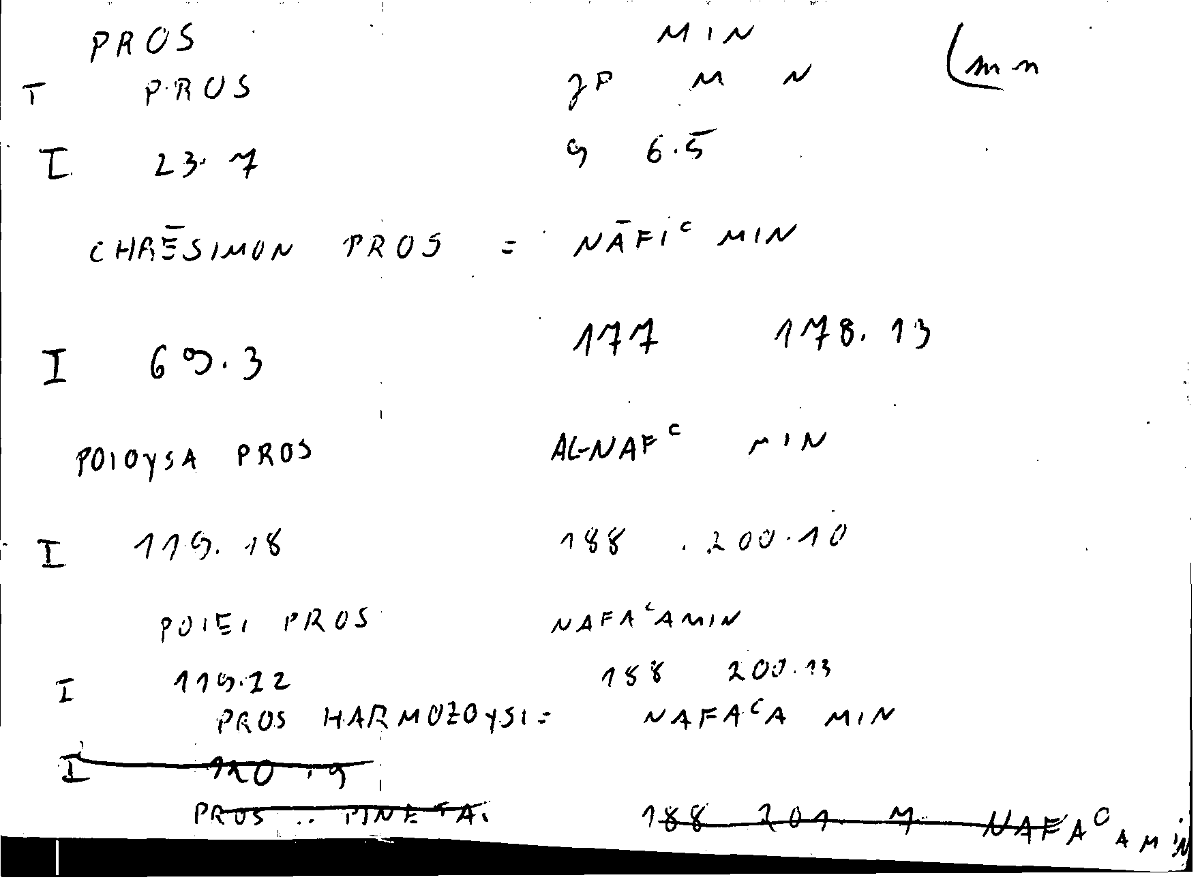 PROS MIN
T PROS JP M N (mn
I 23.7 9 6.5
CHRĒSIMON PROS = NĀFIᶜ MIN
I 69.3 177 178.13
POIOYSA PROS AL-NAFᶜ MIN
I 119.18 188 200.10
POIEI PROS NAFAᶜA MIN
I 119.22 188 200.13
PROS HARMOZOYSI= NAFAᶜA MIN
I 120.9
PROS .. PINETAI 188 201. 7 NAFAᶜA MIN